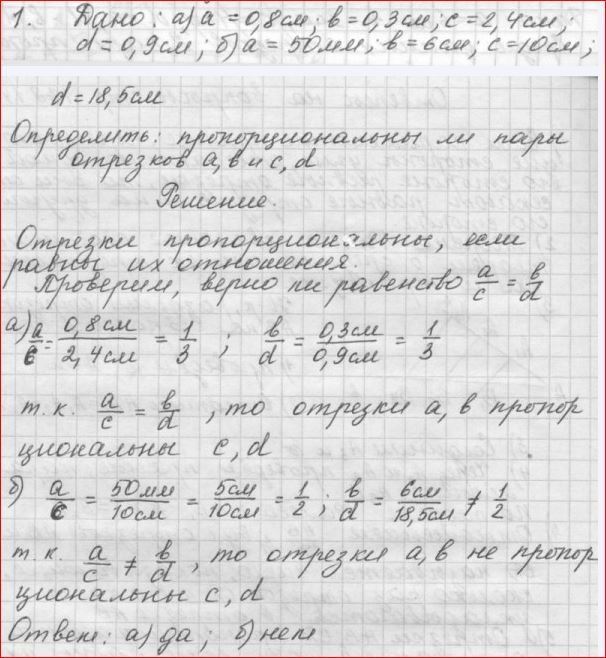 1. Дано: а) a = 0,8 см; b = 0,3 см; c = 2,4 см;
d = 0,9 см; б) a = 50 мм; b = 6 см; c = 10 см;
d = 18,5 см
Определить: пропорциональны ли пары
отрезков a, b и c, d
Решение.
Отрезки пропорциональны, если
равны их отношения.
Проверим, верно ли равенство a/c = b/d
а) a/c = 0,8 см/2,4 см = 1/3 ; b/d = 0,3 см/0,9 см = 1/3
т.к. a/c = b/d , то отрезки a, b пропор
циональны c, d
б) a/c = 50 мм/10 см = 5 см/10 см = 1/2 ; b/d = 6 см/18,5 см ≠ 1/2
т.к. a/c ≠ b/d , то отрезки a, b не пропор
циональны c, d
Ответ: а) да; б) нет